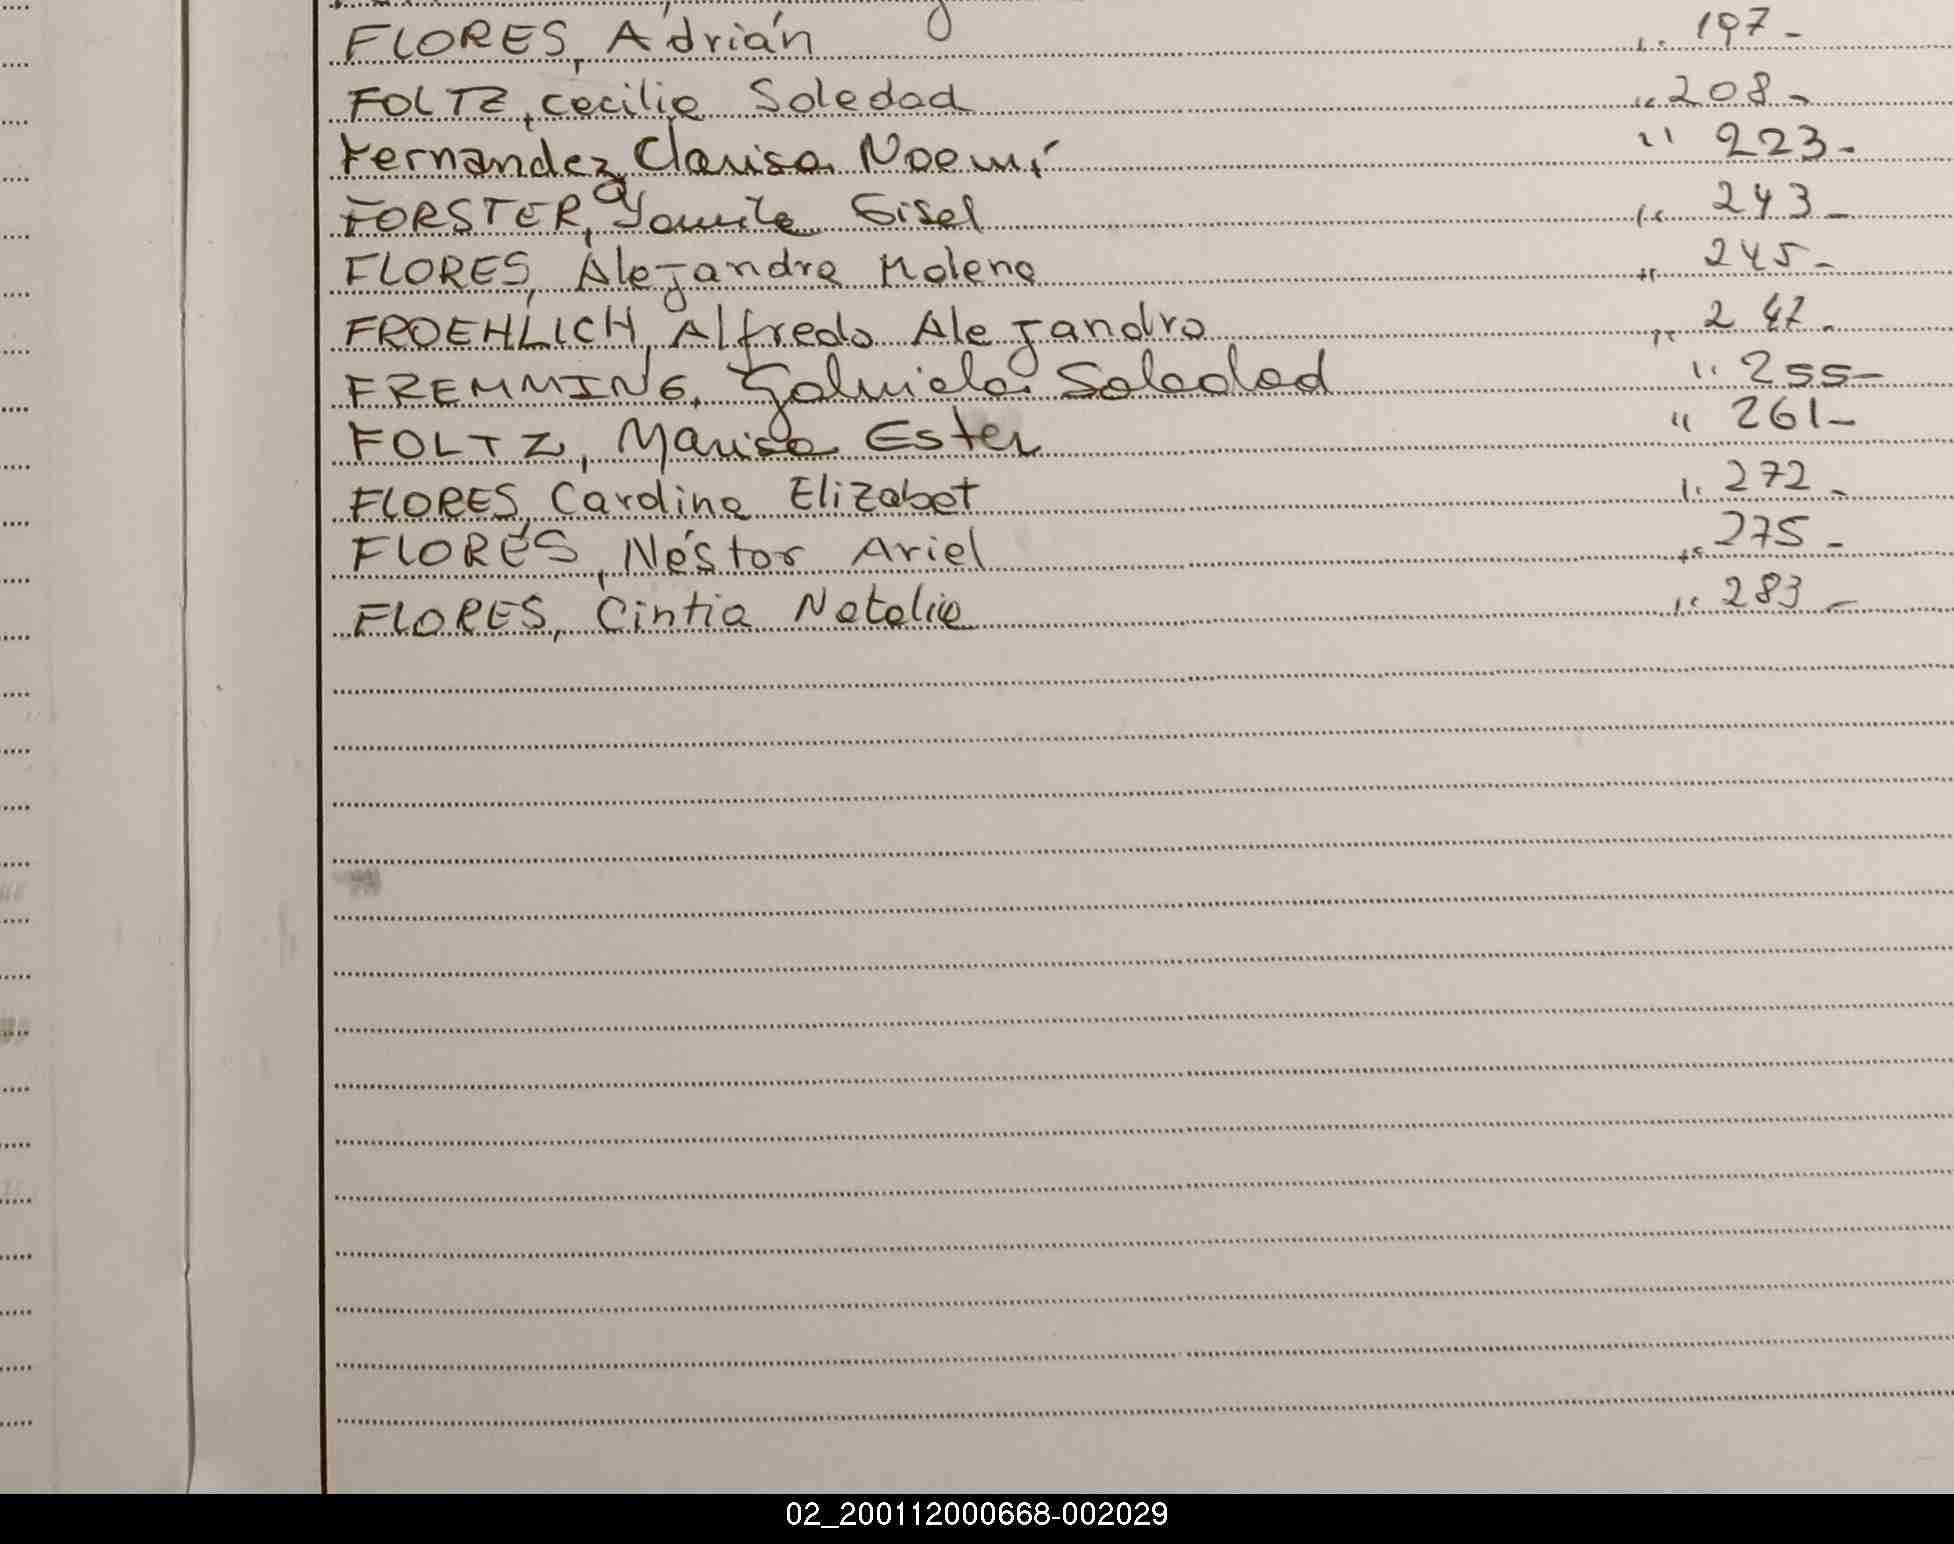 FLORES, Adrián ,, 197-
FOLTZ, Cecilia Soledad ,, 208-
Fernandez, Clarisa Noemí ,, 223-
FORSTER, Yamile Gisel ,, 243-
FLORES, Alejandra Malena ,, 245-
FROEHLICH, Alfredo Alejandro ,, 247-
FREMMING, Gabriela Soledad ,, 255-
FOLTZ, Marisa Ester ,, 261-
FLORES, Carolina Elizabet ,, 272-
FLORES, Néstor Ariel ,, 275-
FLORES, Cintia Natalia ,, 283-
02_200112000668-002029